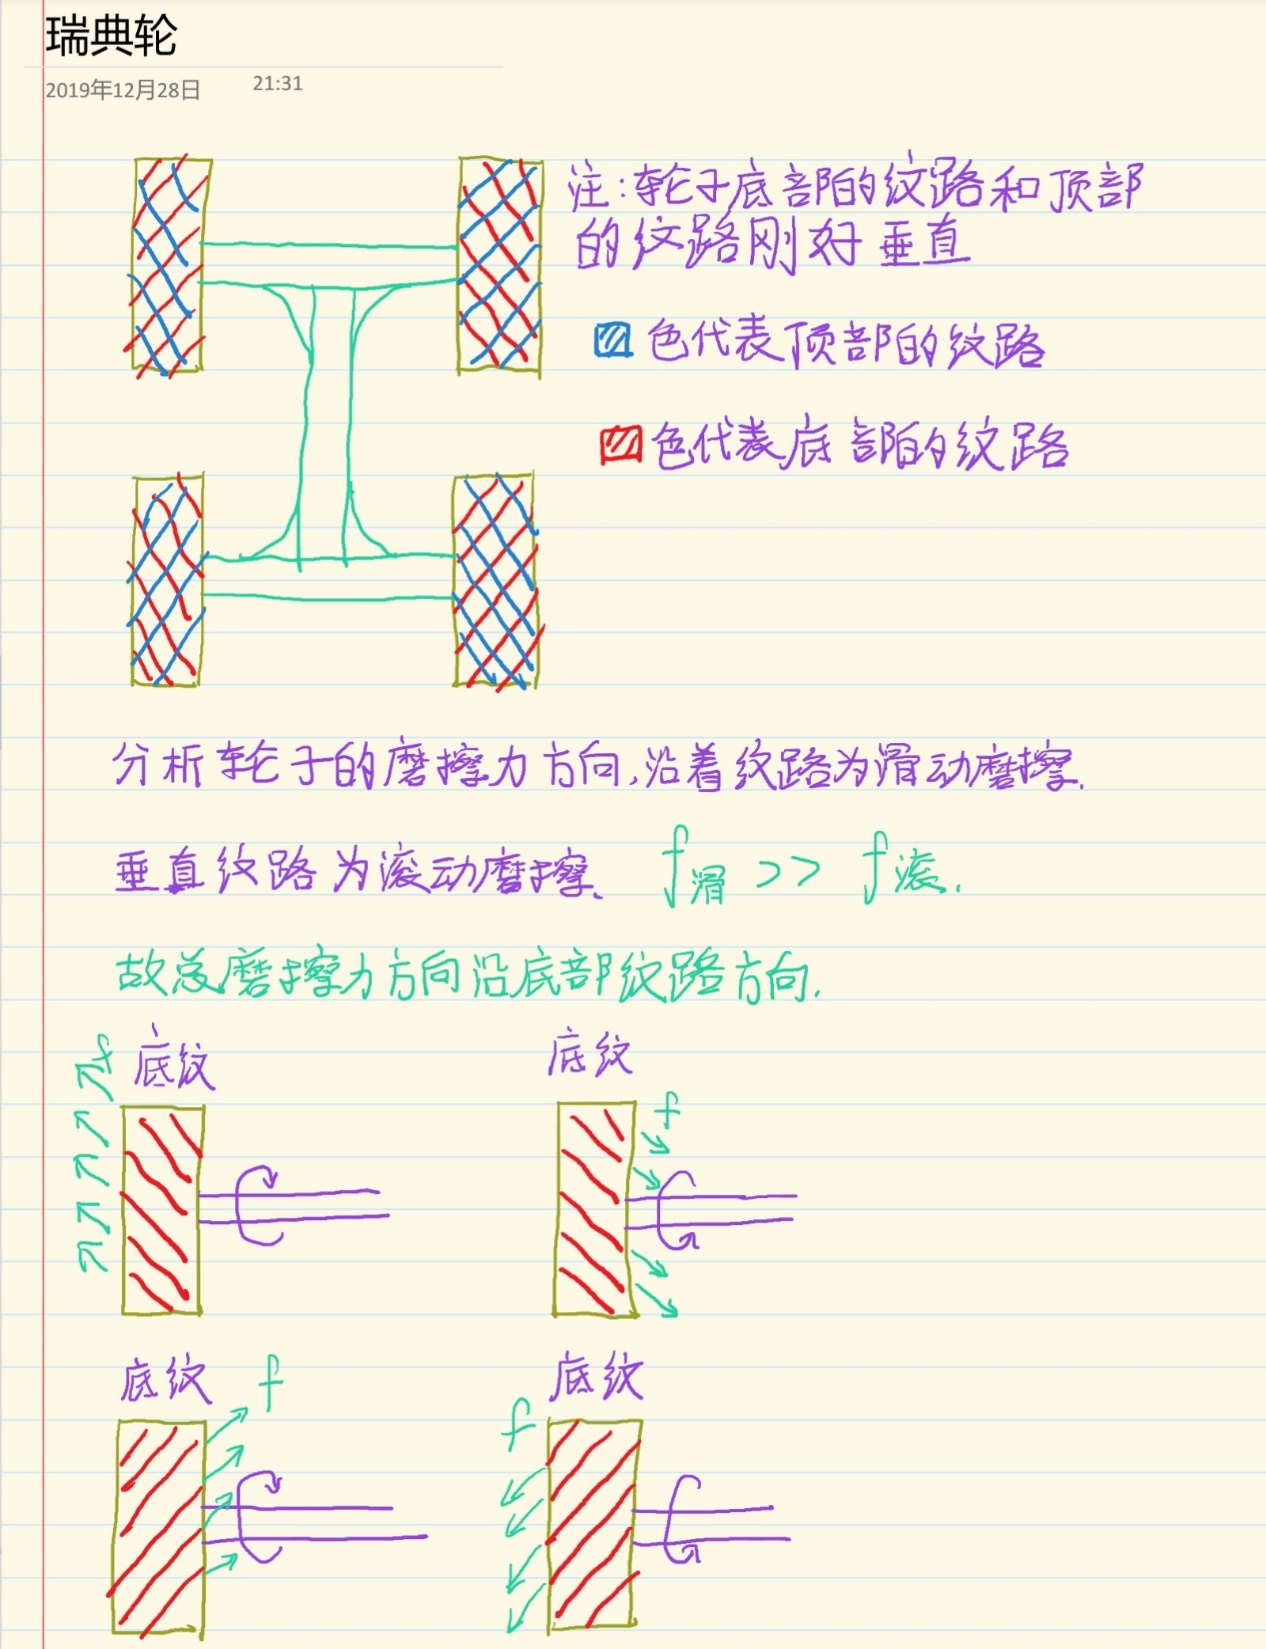 瑞典轮
2019年12月28日 21:31
注:轮子底部的纹路和顶部
的纹路刚好垂直
色代表顶部的纹路
色代表底部的纹路
分析轮子的磨擦力方向,沿着纹路为滑动磨擦.
垂直纹路为滚动磨擦. f滑 >> f滚.
故总磨擦力方向沿底部纹路方向.
f 底纹
底纹
f
底纹 f
底纹
f